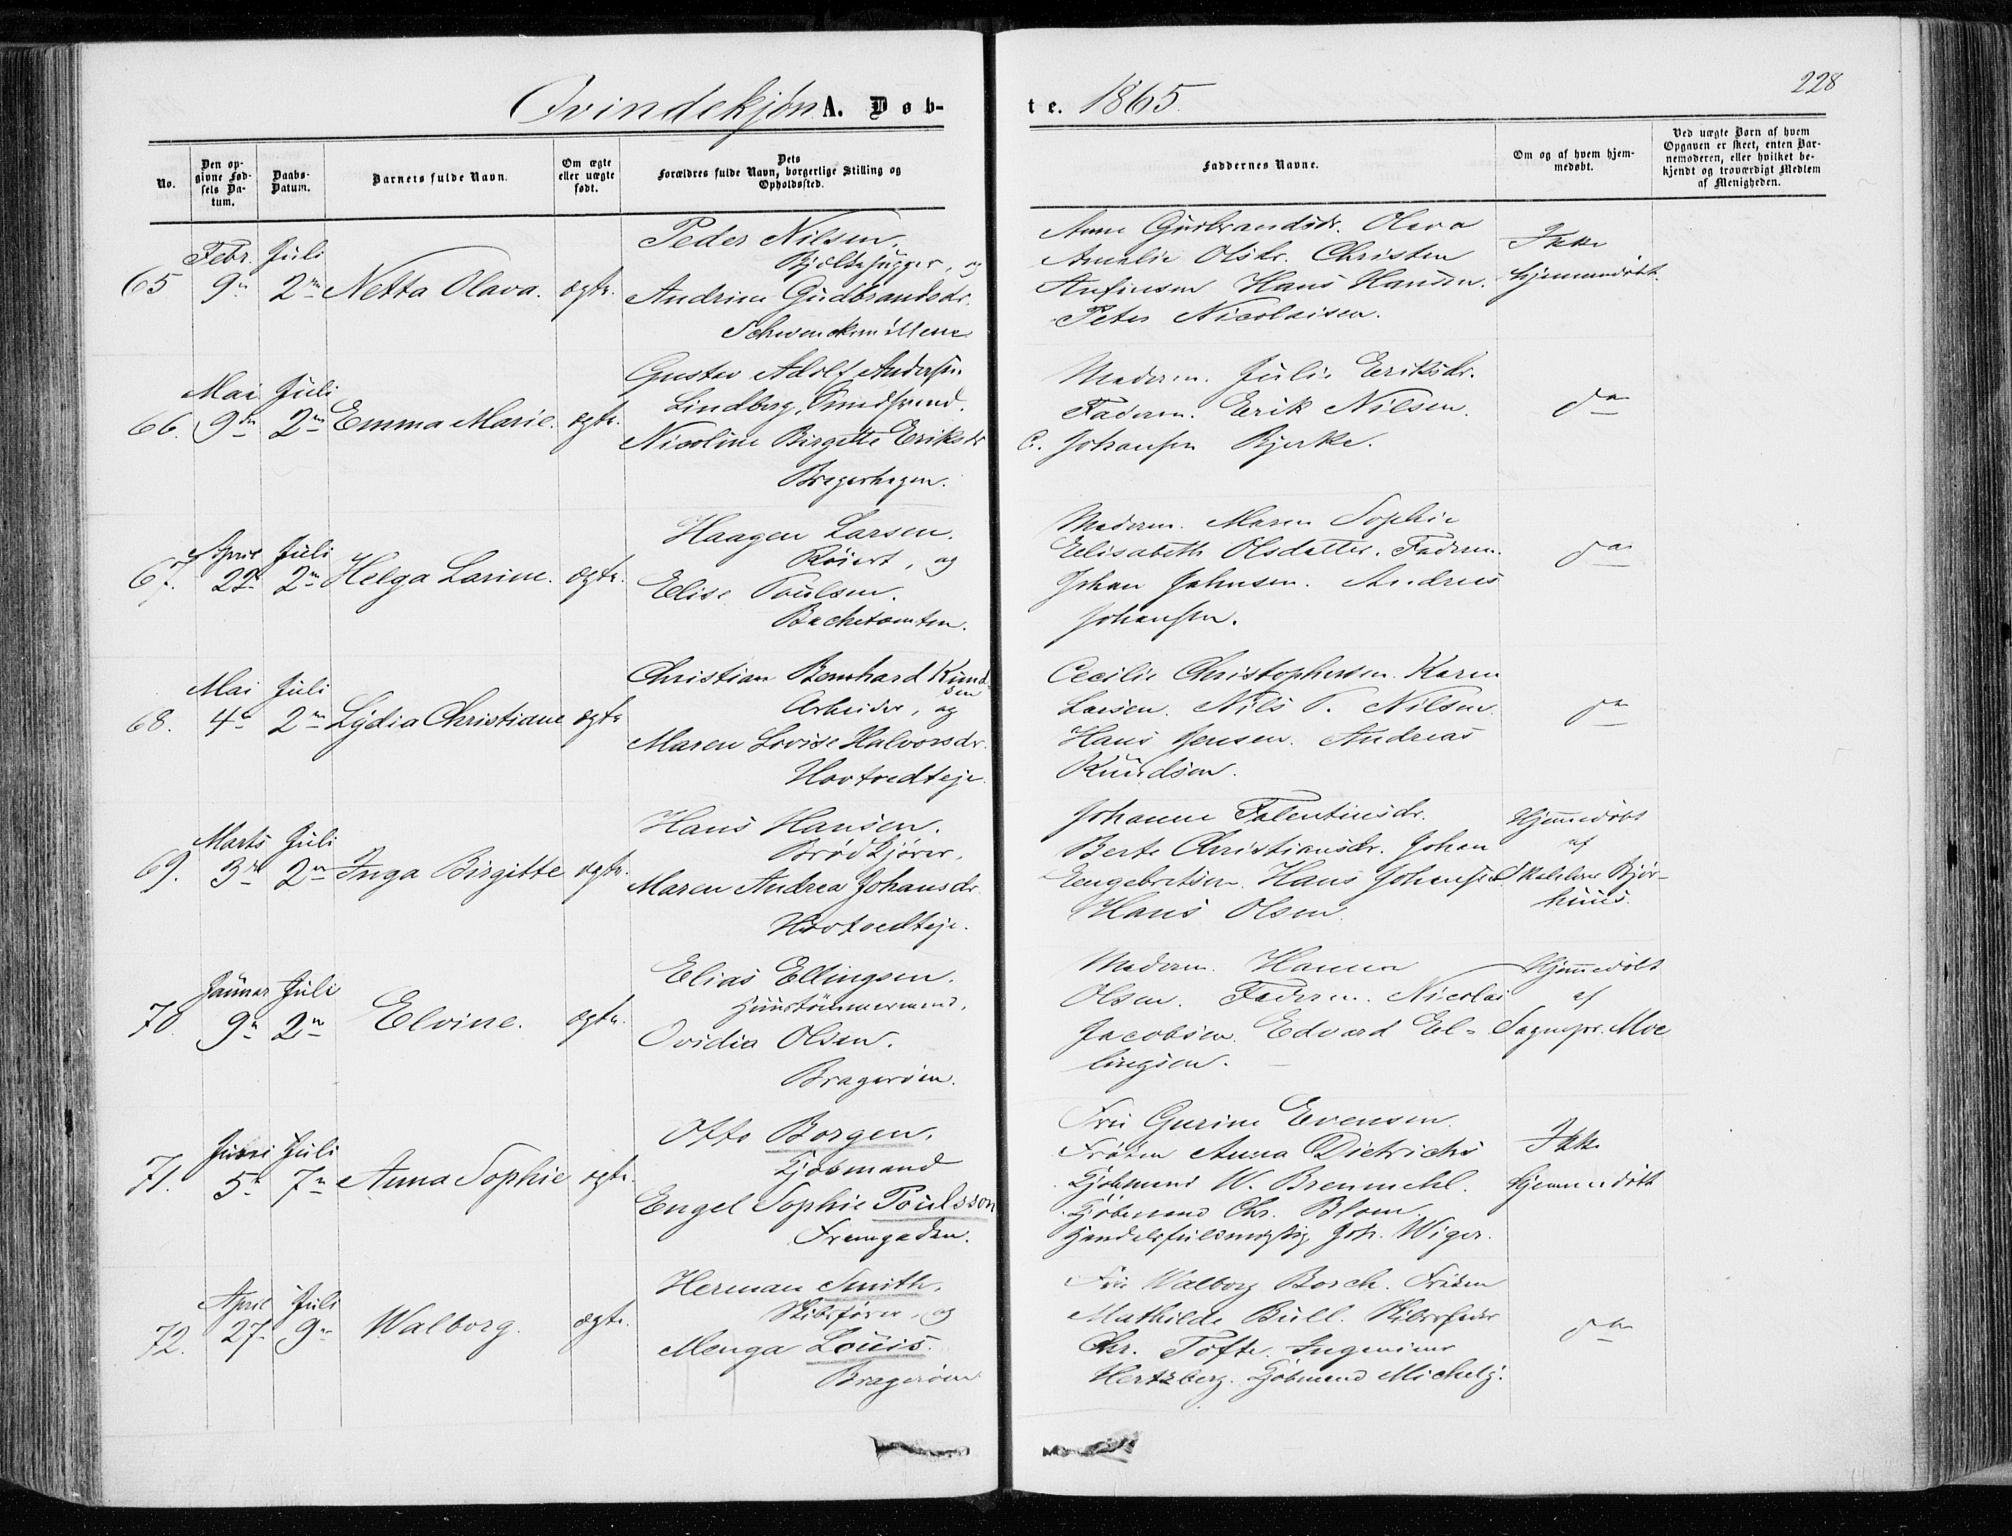 228
Qvindekjøn A. Døb-
te. 1865.
No.
Den op-
givne Fød-
sels Da-
tum.
Daabs-
Datum.
Barnets fulde Navn.
Om ægte
eller uægte
født.
Dets
Forældres fulde Navn, borgerlige Stilling og
Opholdssted.
Faddernes Navne.
Om og af hvem hjem-
medøbt.
Ved uægte Børn af hvem
Opgaven er skeet, enten Bar-
nemoderen, eller hvilket be-
kjendt og troværdigt Medlem
af Menigheden.
65 Febr. 9de Juli 2den Netta Olava. ægte.
Peder Nilsen,
og
Andrine Gudbrandsdr.
Anne Gudbrandsdr. Olava
Amalie Olsdr. Christen
Anfinsen Hans Hansen.
Peter Nicolaisen.
Ikke
hjemmedøbt.
66. Mai 9de Juli 2den Emma Marie. ægte.
Gustav Adolf Andersen
Lindberg,
Nicoline Birgette Eriksdr
Bragerhagen.
Moderen. Julie Eriksdr.
Faderen. Erik Nilsen.
C. Johansen Bjerke.
do
67. April 22 Juli 2den Helga Larine. ægte.
Haagen Larsen.
og
Elise Poulsen.
Moderen. Maren Sophie
Elisabeth Olsdatter. Faderen.
Johan Johnsen. Andreas
Johansen.
do
68. Mai 4de Juli 2den Lydia Christiane ægte
Christian Bernhard Knud-
sen
Arbeider, og
Maren Lovise Halvorsdr.
Hovtvedteje.
Cecilie Christophersen. Karen
Larsen. Nils T. Nilsen.
Hans Jensen. Andreas
Knudsen.
do
69. Marts 3die Juli 2den Inga Birgitte ægte.
Hans Hansen.
Brødkjører,
Maren Andrea Johansdr.
Hovtvedteje.
Johanne Falentinsdr.
Berte Christiansdr. Johan
Engebretsen. Hans Johansen
Hans Olsen.
Hjemmedøbt
af
Bjør-
huus.
70. Januar 9de Juli 2den Elvine. ægte.
Elias Ellingsen.
Huustømmermand,
Ovidia Olsen.
Bragerøen.
Moderen. Hanna
Olsen. Faderen. Nicolai
Jacobsen. Edvard El-
lingsen.
Hjemmedøbt
af
Sognepr. Moe
71. Juni 5te Juli 7de Anna Sophie ægte.
Otto Borgen,
Kjøbmand
Engel Sophie Poulsson
Fremgaden.
Fru Gurine Evensen.
Frøken Anna Dietrichs
Kjøbmand W. Bremmehl.
Kjøbmand Chr. Blom.
Handelsfuldmægtig Joh. Wiger.
Ikke
hjemmedøbt
72. April 27 Juli 9de Walborg. ægte.
Herman Smith,
Skibsfører, og
Menga Louis.
Bragerøen
Fru Walborg Borch. Frøken
Mathilde Bull. Skibsfører
Chr. Tofte. Ingeniør
Hertzberg. Kjøbmand Michely.
do